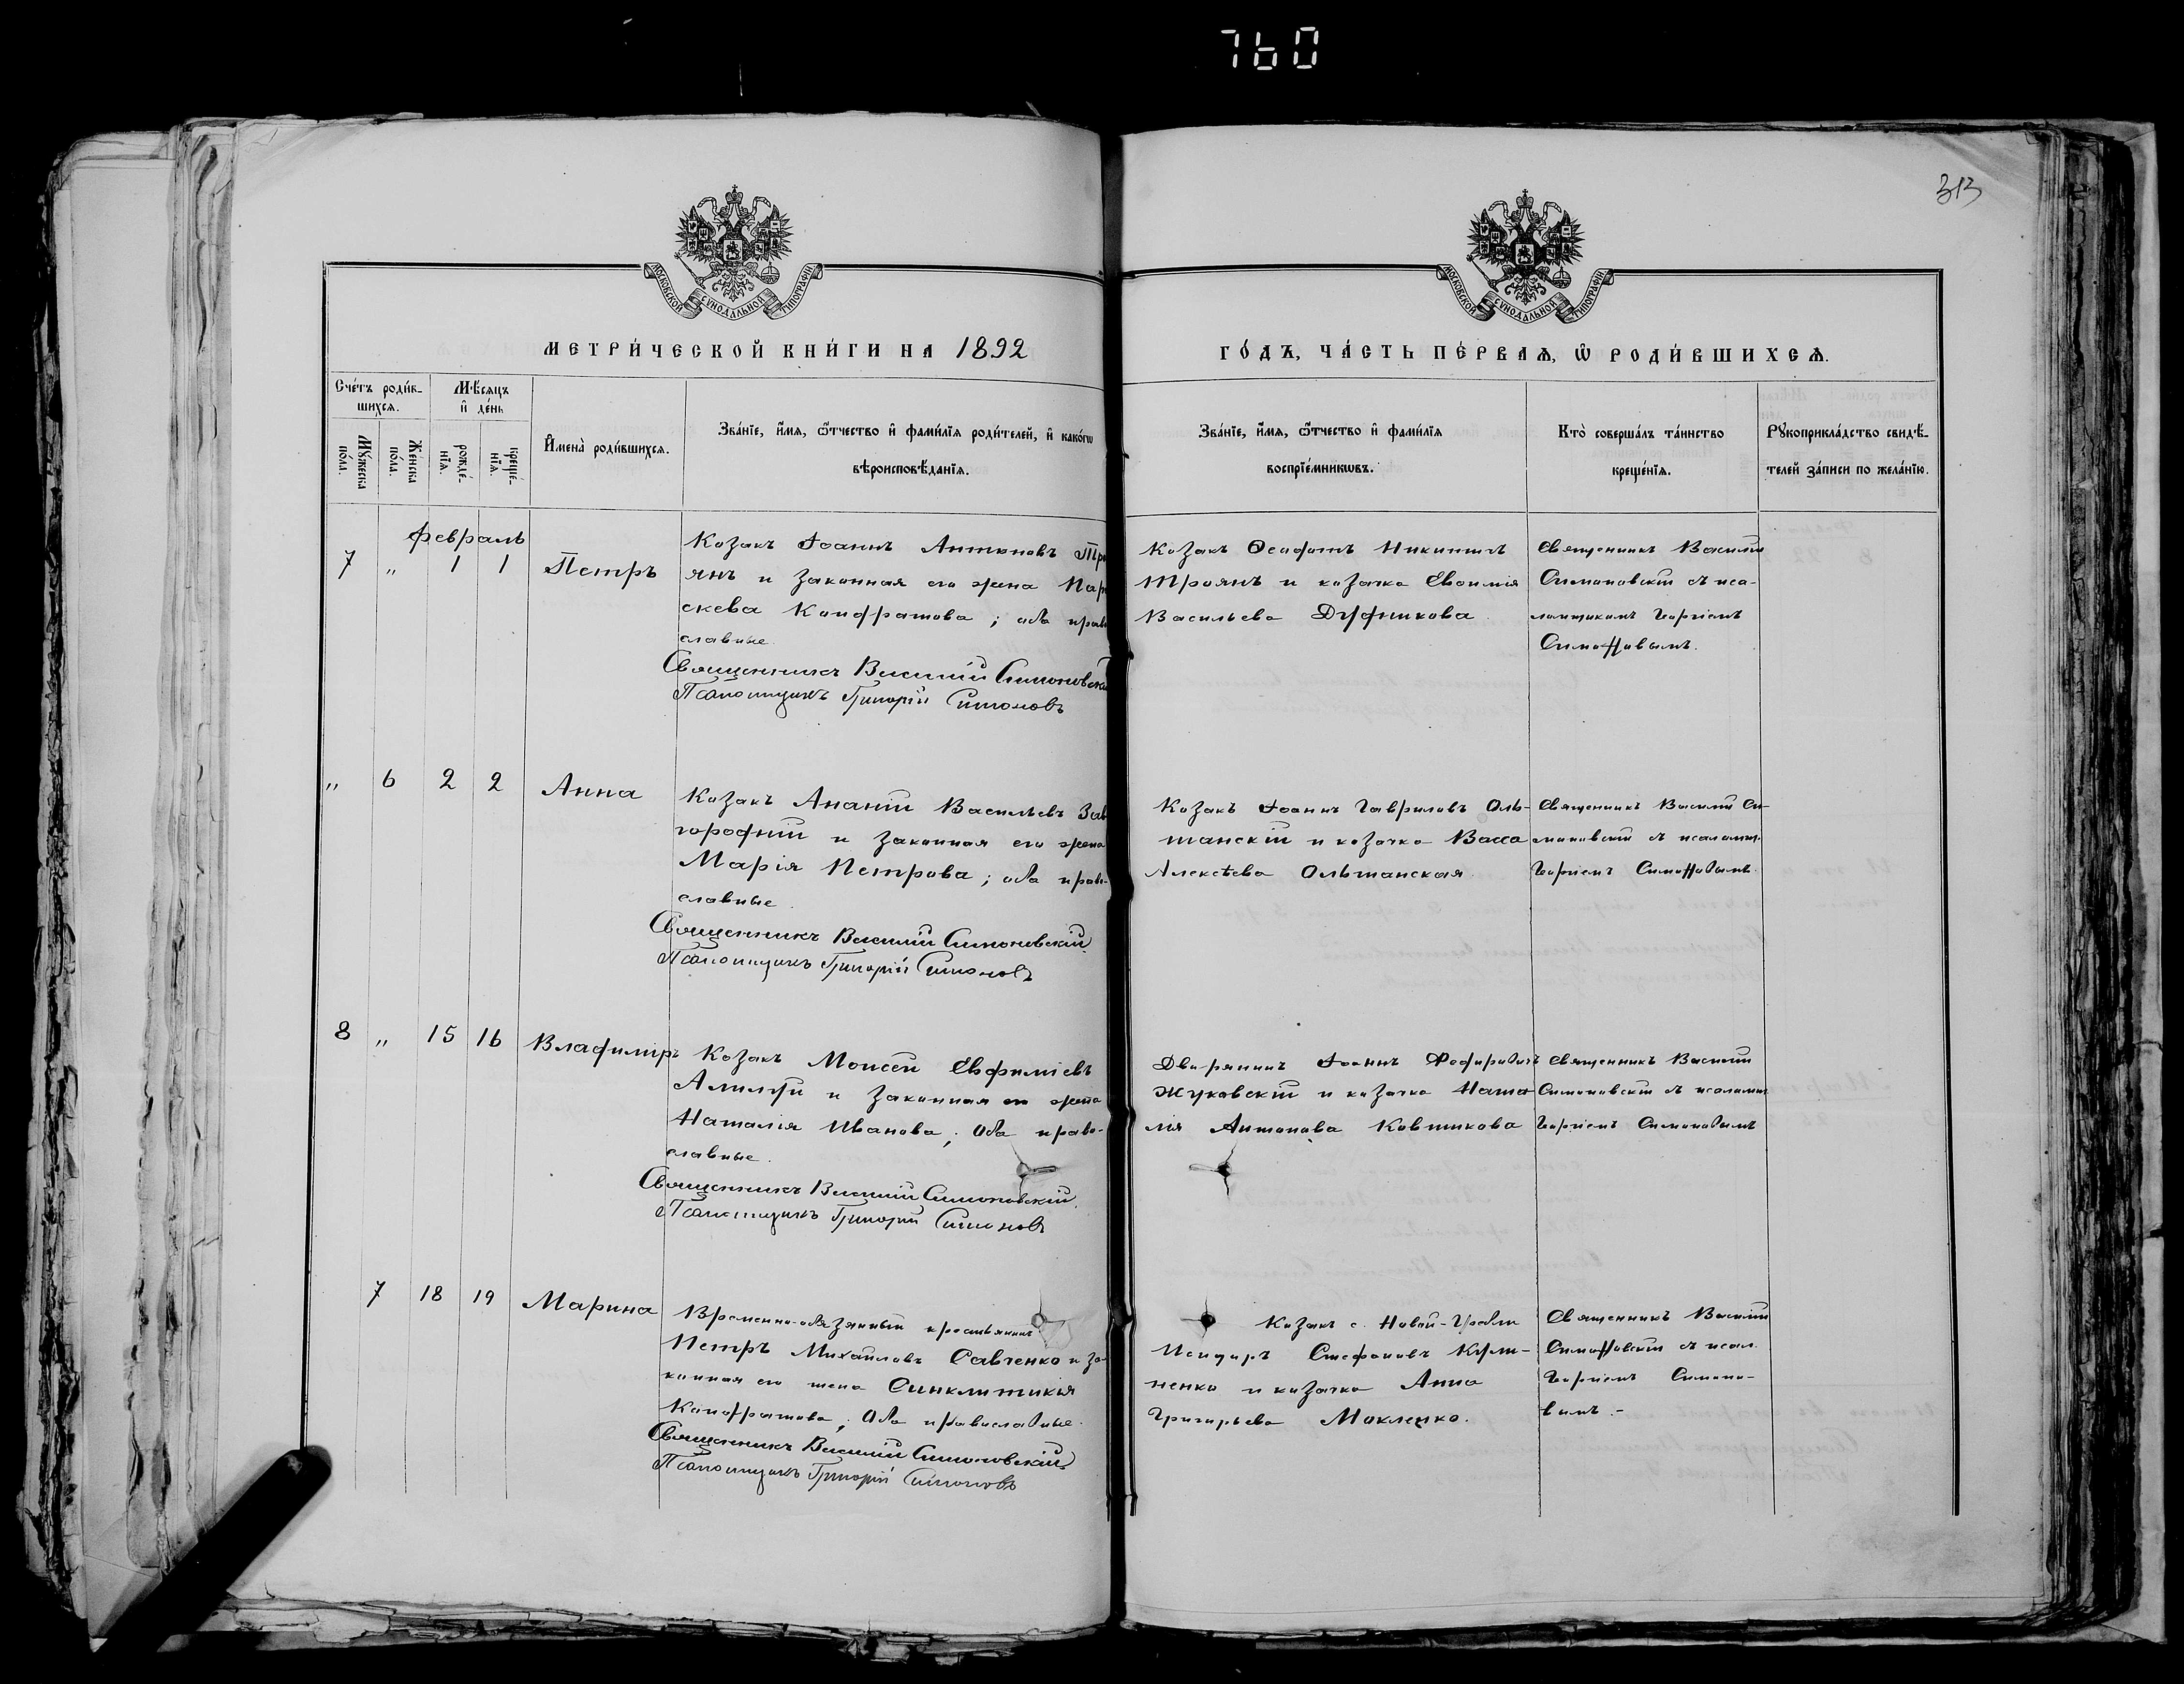 760
313
МОСКОВСКОЙ СѴНОДАЛЬНОЙ ТИПОГРАФІИ
МОСКОВСКОЙ СѴНОДАЛЬНОЙ ТИПОГРАФІИ
МЕТРИ́ЧЕСКОЙ КНИ́ГИ НА 1892
ГО́ДЪ, ЧА́СТЬ ПЕ́РВАѦ, Ѽ РОДИ́ВШИХСѦ.
Сче́тъ роди́в-
шихсѧ.
Мѣ́сяцъ
и҆ де́нь
Мꙋ́жеска
по́ла.
Же́нска
по́ла.
рожде́-
нїѧ.
креще́-
нїѧ.
И҆мена̀ роди́вшихсѧ.
Зва́нїе, и҆́мѧ, ѻ҆́тчество и҆ фами́лїѧ роди́телей, и҆ како́гѡ
вѣроисповѣ́данїѧ.
Зва́нїе, и҆́мѧ, ѻ҆́тчество и҆ фами́лїѧ
воспрїе́мникѡвъ.
Кто̀ соверша́лъ та́инство
креще́нїѧ.
Рꙋкоприкла́дство свидѣ́-
телей за́писи по жела́нїю.
февраль
7 " 1 1 Петръ
Козакъ Іоаннъ Антоновъ Тро
янъ и законная его жена Пар
скева Кондратова; оба право
славные.
Священникъ Василій Симоновскій
Псаломщикъ Григорій Симоновъ
Козакъ Никитинъ
Троянъ и козачка Евѳимія
Васильева Дудникова.
Священникъ Василій
Симоновскій съ пса-
ломщикомъ Георгіемъ
Симоновымъ.
" 6 2 2 Анна
Козакъ Ананій Васильевъ Зав
городній и законная его жена
Марія Петрова; оба право-
славные.
Священникъ Василій Симоновскій
Псаломщикъ Григорій Симоновъ
Козакъ Іоаннъ Гавриловъ Оль-
шанскій и козачка Васса
Алексѣева Ольшанская.
Священникъ Василій Си-
моновскій съ псаломщ.
Георгіемъ Симоновымъ.
8 " 15 16 Владиміръ
Козакъ Моисей Евфиміевъ
и законная его жена
Наталія Иванова; Оба право-
славные.
Священникъ Василій Симоновскій.
Псаломщикъ Григорій Симоновъ
Дворянинъ Іоаннъ Ѳедоровичъ
Жуковскій и козачка Ната
лія Антонова Ковтикова
Священникъ Василій
Симоновскій съ псаломщ
Георгіемъ Симоновымъ
7 18 19 Марина
Временно-обязанный крестьянинъ
Петръ Михайловъ Савченко и за-
конная его жена Синклитикія
Кондратова; Оба православные.
Священникъ Василій Симоновскій
Псаломщикъ Григорій Симоновъ
Козакъ с. Новой-Гребли
Стефановъ
ненко и козачка Анна
Григорьева Мокленко.
Священникъ Василій
Симоновскій съ псал.
Георгіемъ Симоно-
вымъ.-